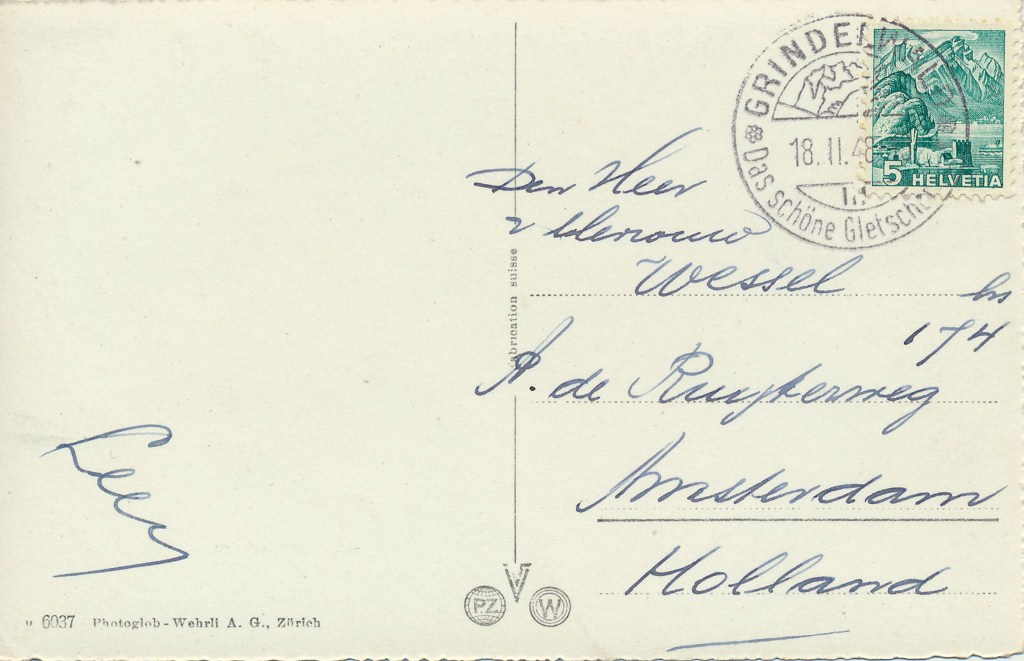 GRINDELWALD
18.II.48
Das schöne Gletscher
5 HELVETIA
Den Heer
Mevrouw
Wessel
hs
174
A. de Ruyterweg
Amsterdam
Holland
fabrication suisse
Leen
PZ
W
6037 Photoglob-Wehrli A. G., Zürich